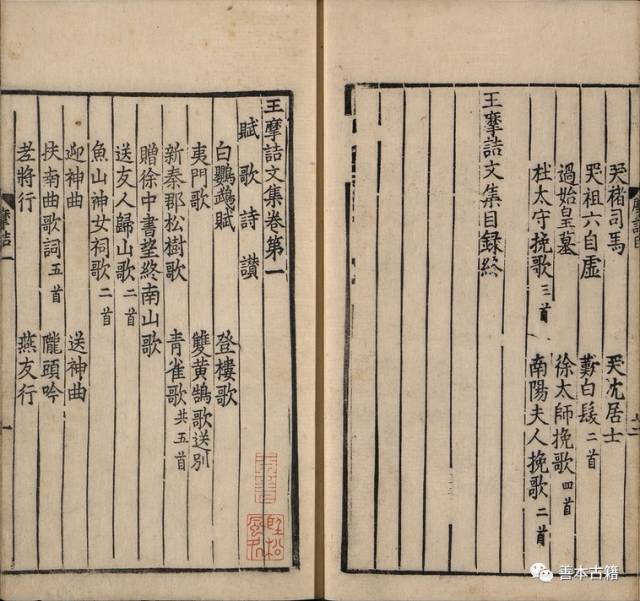 哭褚司馬　哭沈居士
哭祖六自虛　歎白髮二首
過始皇墓　徐太師挽歌四首
杜太守挽歌三首　南陽夫人挽歌二首
王摩詰文集目録終
王摩詰文集卷第一
賦歌詩讃
白鸚鵡賦　登樓歌
夷門歌　雙黄鵠歌送别
新秦郡松樹歌　青雀歌共五首
贈徐中書望終南山歌
送友人歸山歌二首
魚山神女祠歌二首
迎神曲　送神曲
扶南曲歌詞五首　隴頭吟
老將行　燕支行
摩詰一
一
善本古籍